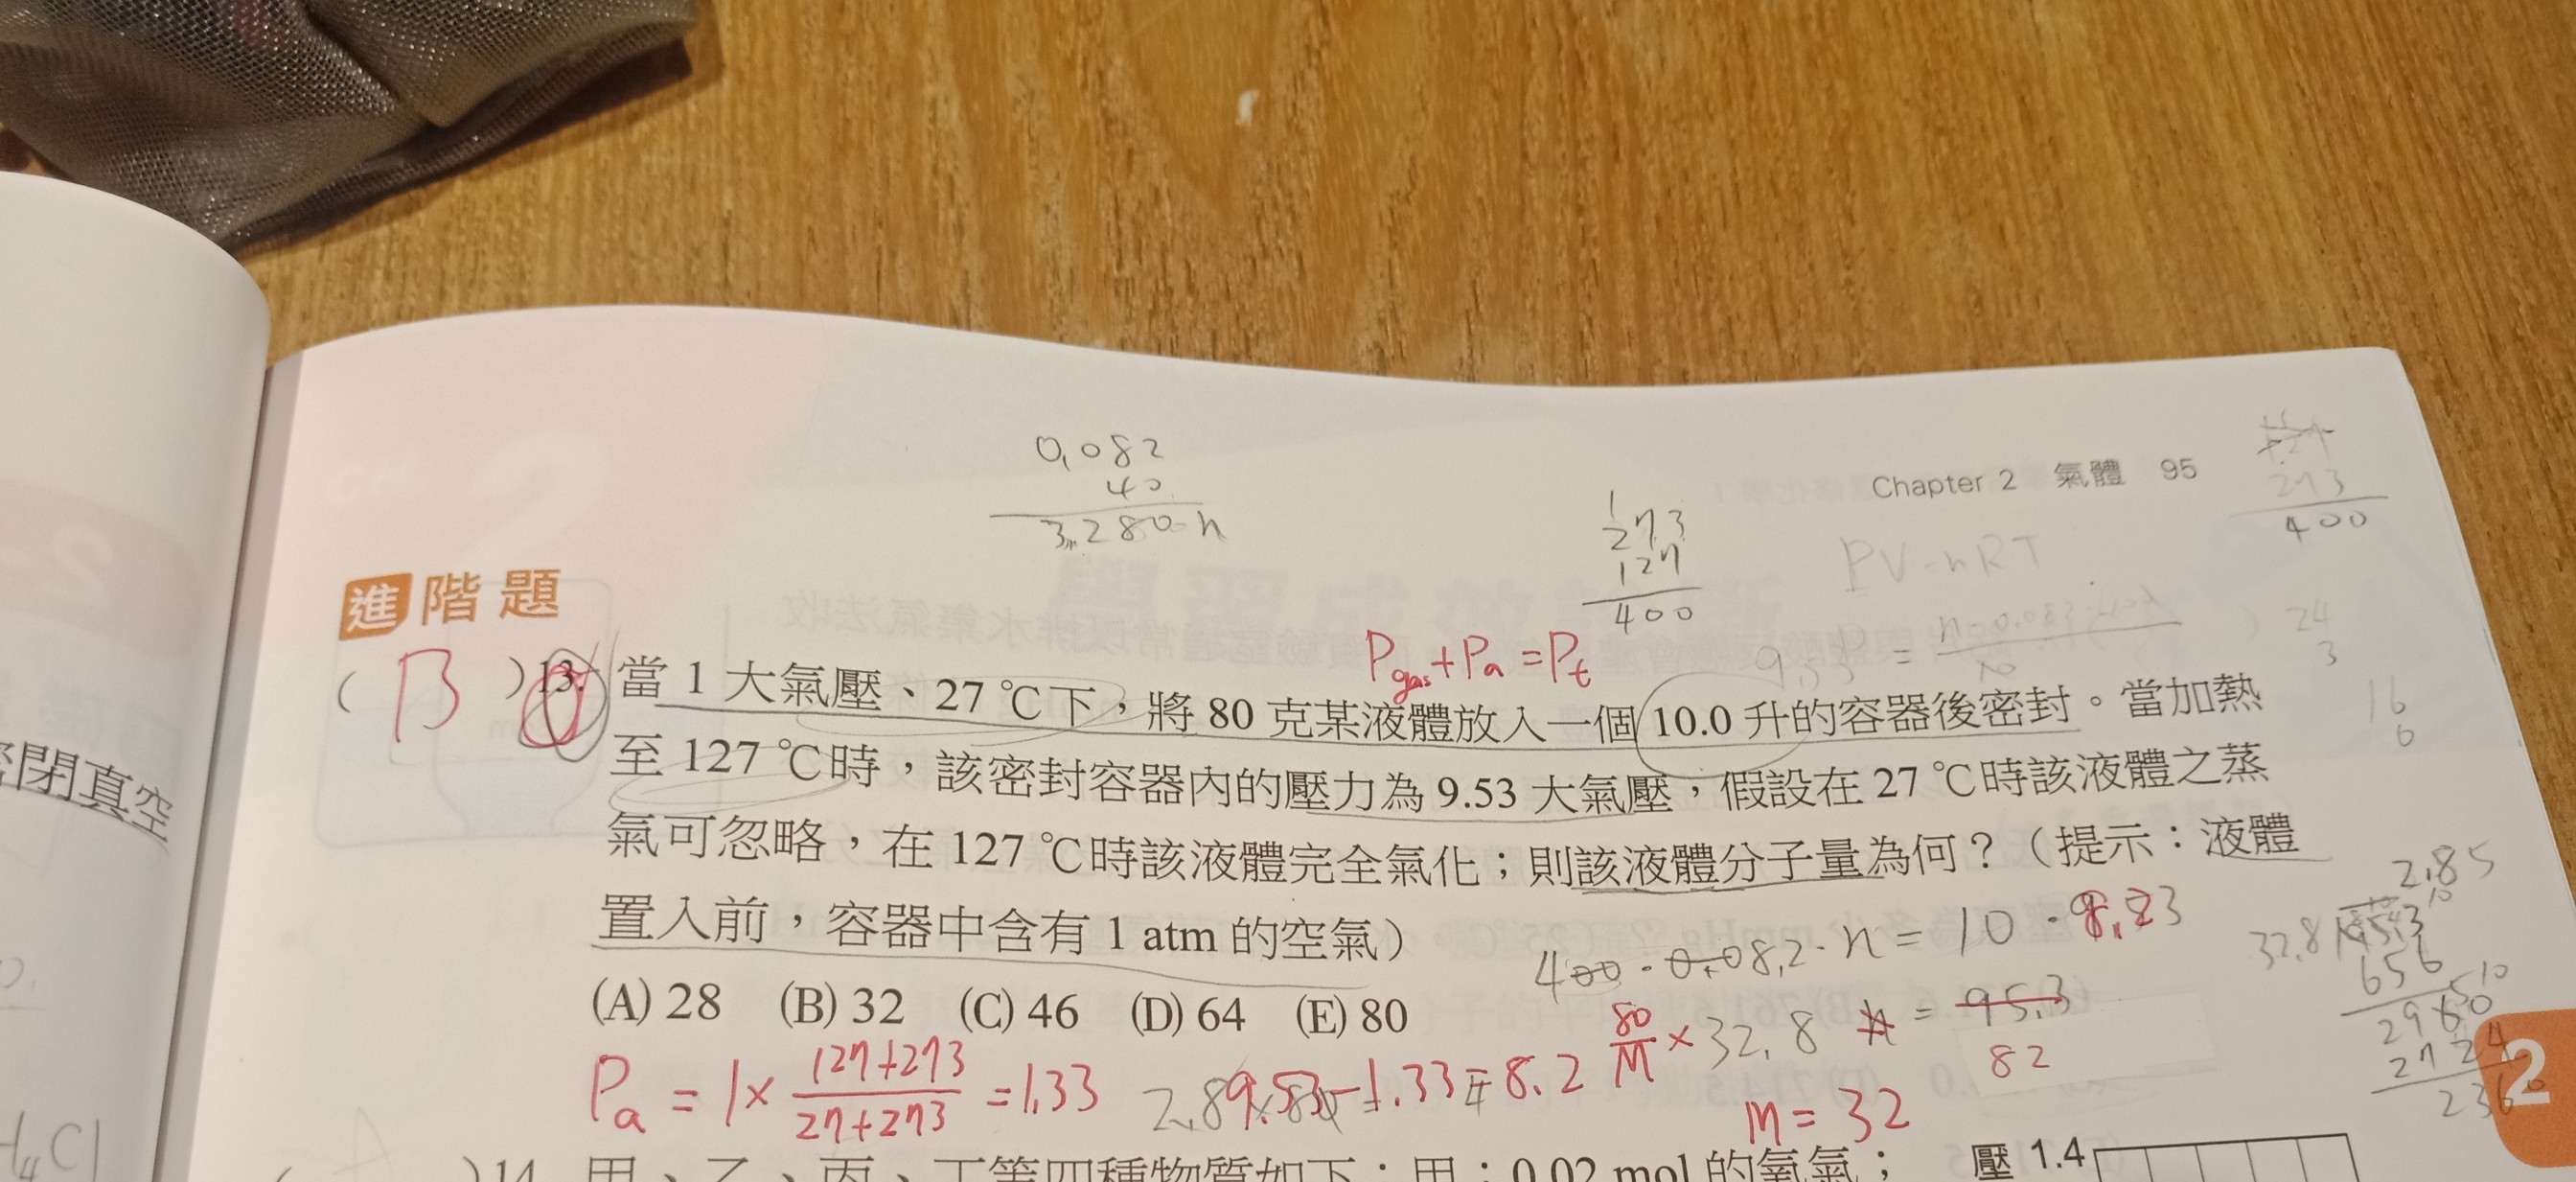 0.082
40
3.280 n
Chapter 2 氣體 95
273
127
400
273
400
PV=nRT
24
3
16
6
進階題
Pgas+Pa=Pt
(B)13. 當 1 大氣壓、27 ℃下，將 80 克某液體放入一個 10.0 升的容器後密封。當加熱
至 127 ℃時，該密封容器內的壓力為 9.53 大氣壓，假設在 27 ℃時該液體之蒸
氣可忽略，在 127 ℃時該液體完全氣化；則該液體分子量為何？（提示：液體
置入前，容器中含有 1 atm 的空氣）
400·0.082·n=10·8.23
(A) 28 (B) 32 (C) 46 (D) 64 (E) 80
80/M × 32.8 n = 95.3
82
Pa = 1× 127+273/27+273 =1.33
9.53-1.33=8.2
M=32
2.85
32.8
656
2960
2724
236
密閉真空
H4Cl
2
)14. 甲、乙、丙、丁等四種物質如下：甲：0.02 mol 的氧氣；
壓 1.4